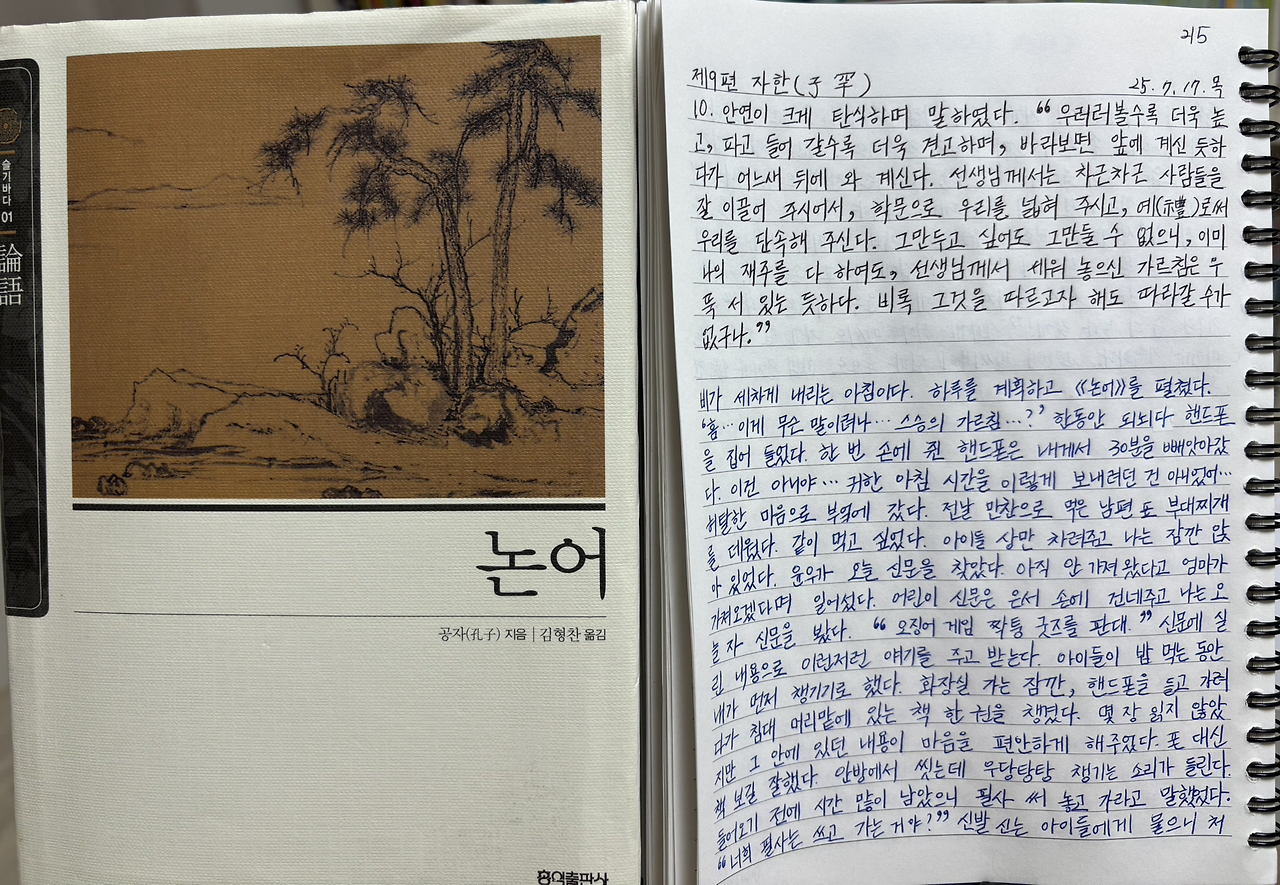 슬기바다 01
論語
논어
공자(孔子) 지음 | 김형찬 옮김
홍익출판사
215
제9편 자한(子罕)
25. 7. 17. 목
10. 안연이 크게 탄식하며 말하였다. “우러러볼수록 더욱 높
고, 파고 들어 갈수록 더욱 견고하며, 바라보면 앞에 계신 듯하
다가 어느새 뒤에 와 계신다. 선생님께서는 차근차근 사람들을
잘 이끌어 주시어서, 학문으로 우리를 넓혀 주시고, 예(禮)로써
우리를 단속해 주신다. 그만두고 싶어도 그만둘 수 없으니, 이미
나의 재주를 다 하여도, 선생님께서 세워 놓으신 가르침은 우
뚝 서 있는 듯하다. 비록 그것을 따르고자 해도 따라갈 수가
없구나.”
비가 세차게 내리는 아침이다. 하루를 계획하고 《논어》를 펼쳤다.
‘흠… 이게 무슨 말이려나… 스승의 가르침…?’ 한동안 되뇌다 핸드폰
을 집어 들었다. 한 번 손에 쥔 핸드폰은 내게서 30분을 빼앗아갔
다. 이건 아니야… 귀한 아침 시간을 이렇게 보내려던 건 아니었어…
허탈한 마음으로 부엌에 갔다. 전날 만찬으로 먹은 남편 표 부대찌개
를 데웠다. 같이 먹고 싶었다. 아이들 상만 차려주고 나는 잠깐 앉
아 있었다. 윤우가 오늘 신문을 찾았다. 아직 안 가져 왔다고 엄마가
가져오겠다며 일어섰다. 어린이 신문은 은서 손에 건네주고 나는 오
늘자 신문을 봤다. “오징어 게임 짝퉁 굿즈를 판대.” 신문에 실
린 내용으로 이런저런 얘기를 주고 받는다. 아이들이 밥 먹는 동안
내가 먼저 챙기기로 했다. 화장실 가는 잠깐, 핸드폰을 들고 가려
다가 침대 머리맡에 있는 책 한 권을 챙겼다. 몇 장 읽지 않았
지만 그 안에 있던 내용이 마음을 편안하게 해주었다. 폰 대신
책 보길 잘했다. 안방에서 씻는데 우당탕탕 챙기는 소리가 들린다.
들어오기 전에 시간 많이 남았으니 필사 써 놓고 가라고 말했었다.
“너희 필사는 쓰고 가는 거야?” 신발 신는 아이들에게 물으니 처